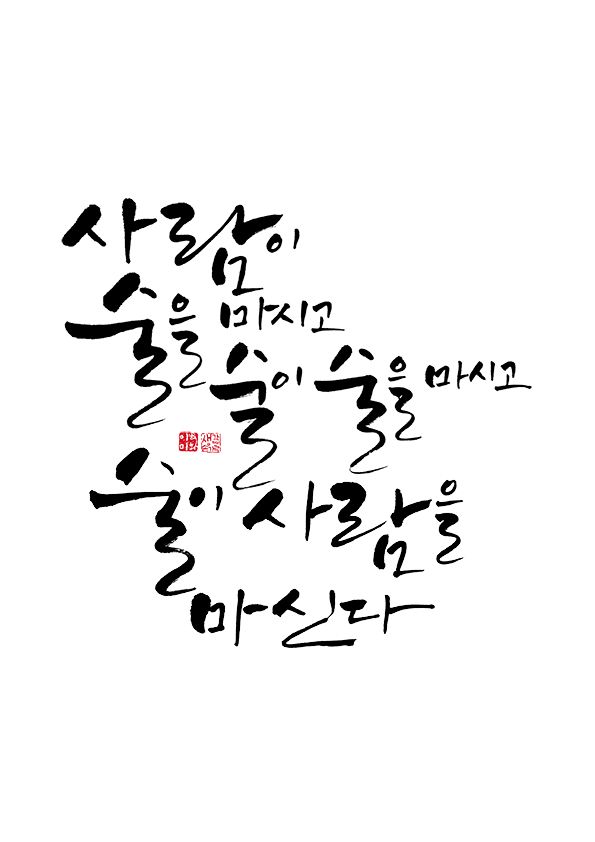 사람이
술을 마시고
술이 술을 마시고
술이 사람을
마신다